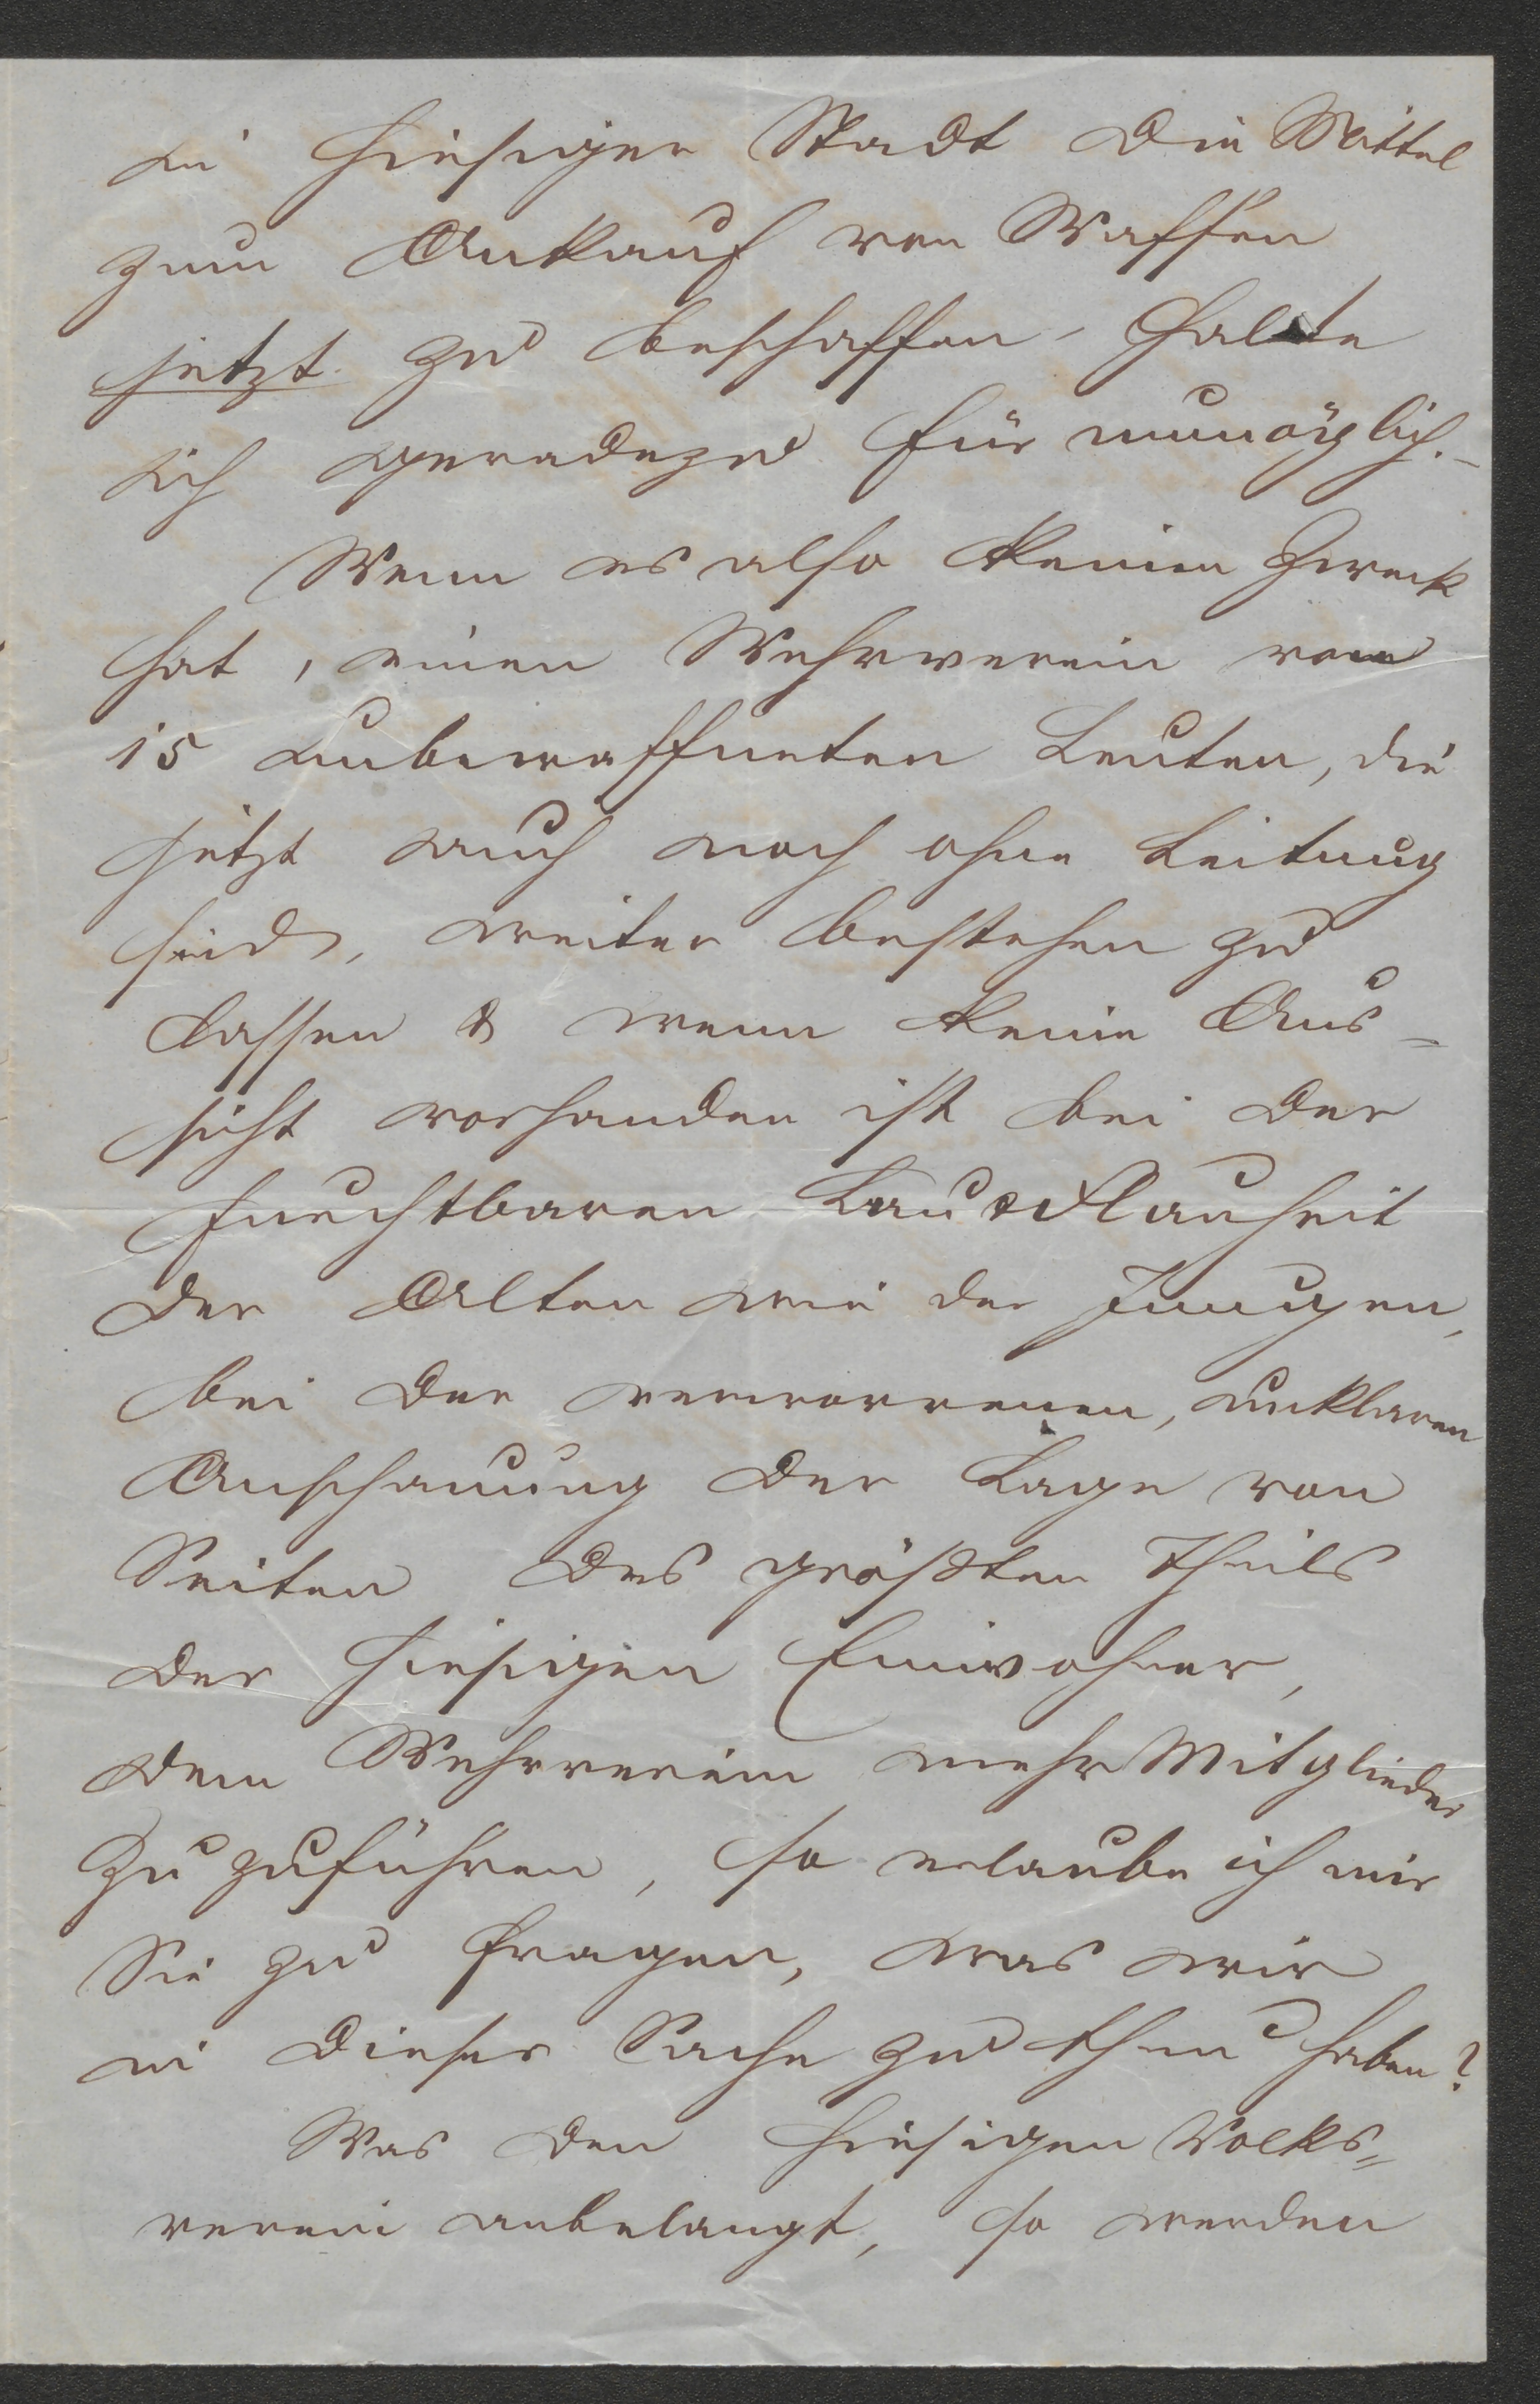 in hiesiger Stadt die Mittel
zum Ankauf von Waffen
jetzt zu beschaffen, halte
ich geradezu für unmöglich. –
Wenn es also keinen Zweck
hat, einen Wehrverein von
15 unbewaffneten Leuten, die
jetzt auch noch ohne Leitung
sind, weiter bestehen zu
lassen & wenn keine Aus-
sicht vorhanden ist bei der
furchtbaren Lau & Flauheit
der Alten wie der Jungen,
bei der verworrenen, unklaren
Anschauung der Lage von
Seiten des größten Theils
der hiesigen Einwohner,
dem Wehrverein mehr Mitglieder
zuzuführen, so erlaube ich mir
Sie zu fragen, was wir
in dieser Sache zu thun haben?
Was den hiesigen Volks-
verein anbelangt, so werden